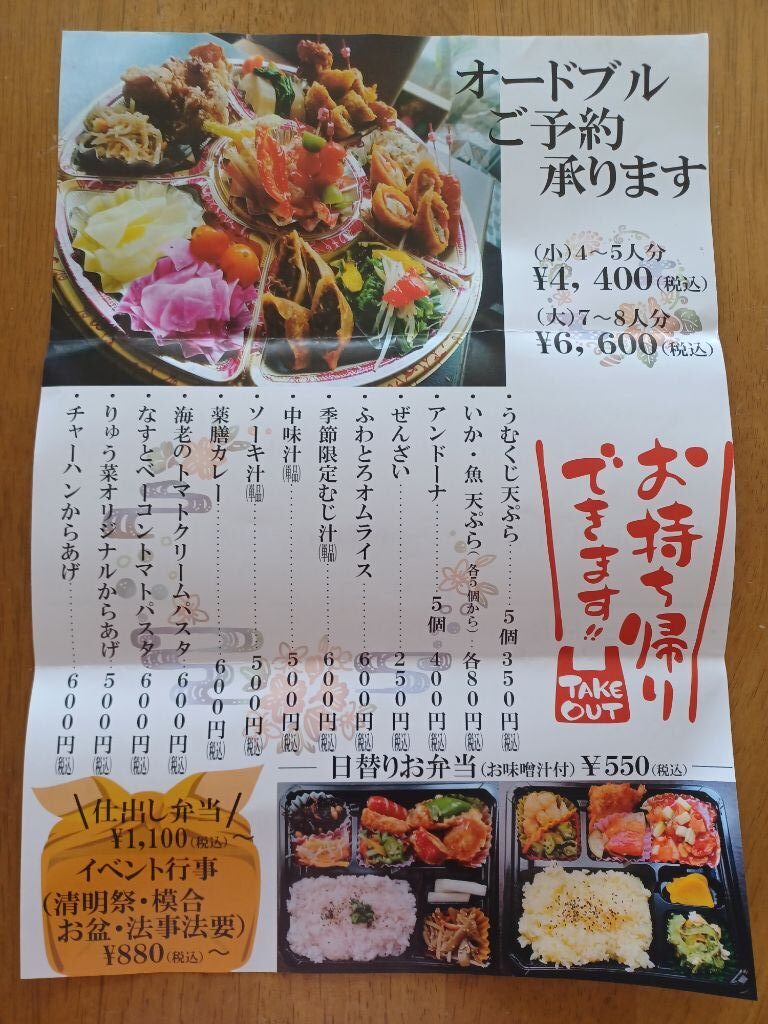 オードブル
ご予約
承ります
(小)4〜5人分
¥4,400(税込)
(大)7〜8人分
¥6,600(税込)
お持ち帰り
できます!!
TAKE
OUT
・うむくじ天ぷら……5個 350円(税込)
・いか・魚 天ぷら(各5個から)…各80円(税込)
・アンドーナ……5個 400円(税込)
・ぜんざい……250円(税込)
・ふわとろオムライス……600円(税込)
・季節限定むじ汁(単品)……600円(税込)
・中味汁(単品)……500円(税込)
・ソーキ汁(単品)……500円(税込)
・薬膳カレー……600円(税込)
・海老のトマトクリームパスタ…600円(税込)
・なすとベーコントマトパスタ…600円(税込)
・りゅう菜オリジナルからあげ…500円(税込)
・チャーハンからあげ……600円(税込)
日替りお弁当(お味噌汁付)¥550(税込)
\仕出し弁当/
¥1,100(税込)〜
イベント行事
(清明祭・模合
お盆・法事法要)
¥880(税込)〜